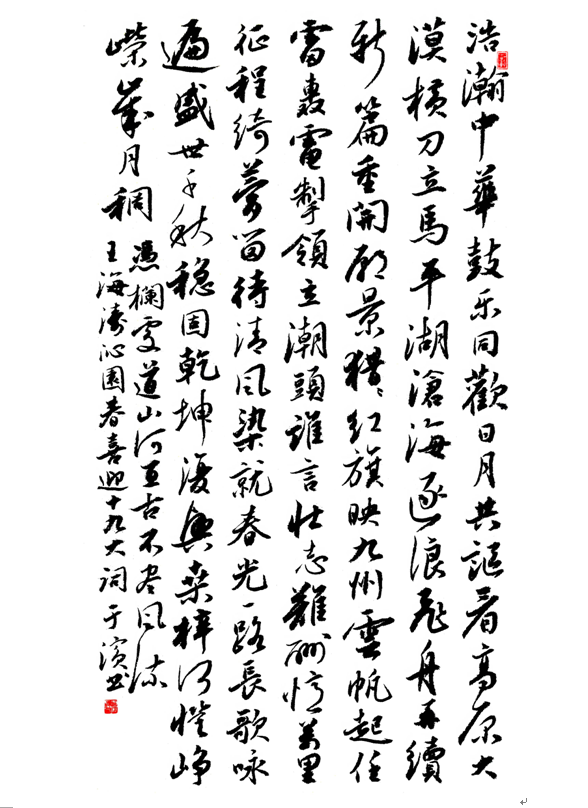 浩瀚中華鼓乐同歡日月共謳看高原大
漠橫刀立馬平湖滄海逐浪飛舟再續
新篇重開愿景猎々红旗映九州雲帆起任
雷轟電掣領立潮頭誰言壯志難酬忆萬里
征程绮夢留待清风染就春光一路長歌咏
遍盛世千秋穩固乾坤復興桑梓何峥
嵘歲月稠 憑欄處道山河亘古不尽风流
王海濤沁園春喜迎十九大詞于濱书